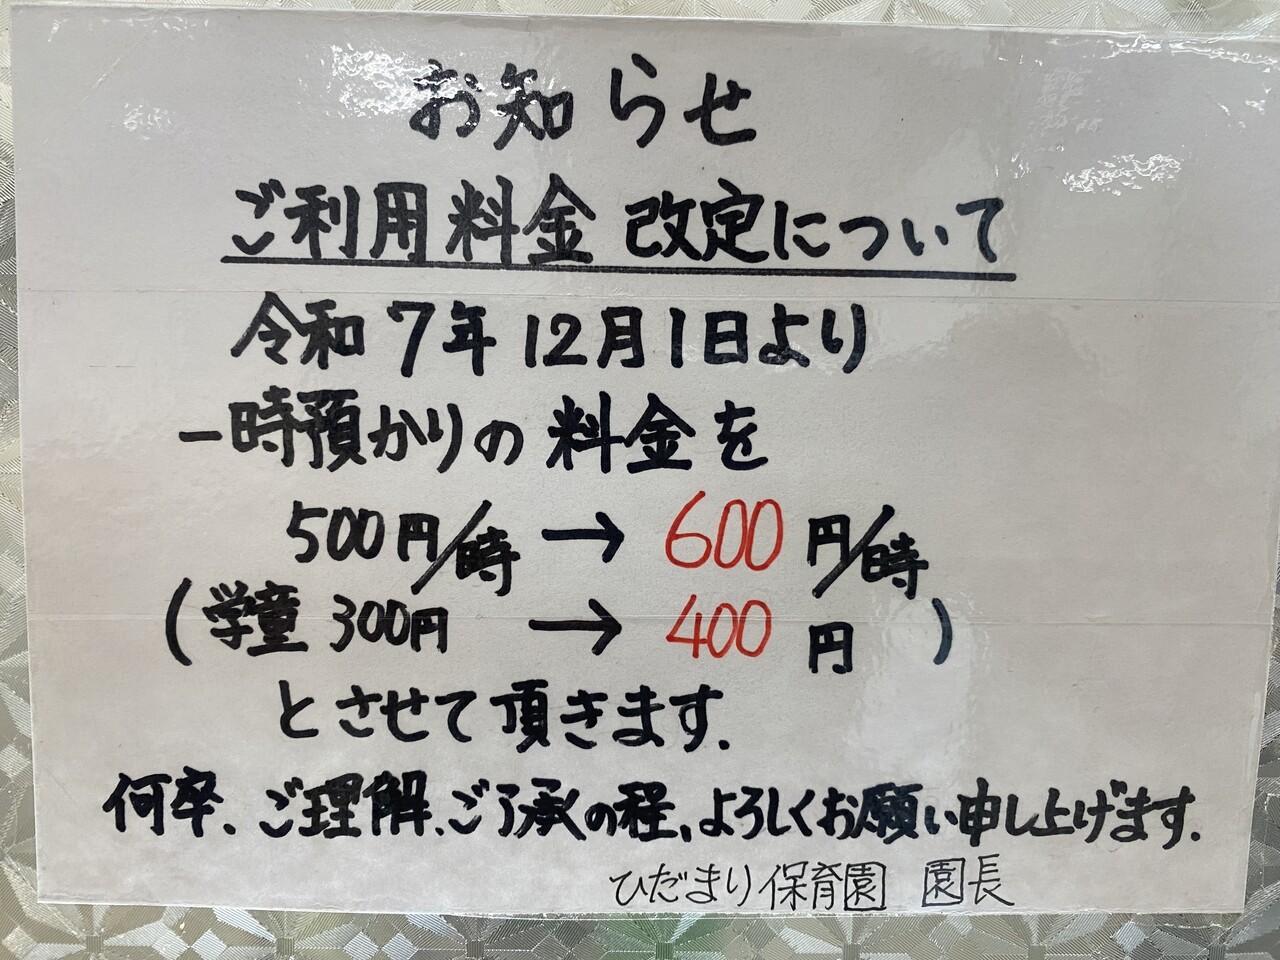 お知らせ
ご利用料金 改定について
令和7年12月1日より
一時預かりの料金を
500円/時 → 600円/時
(学童 300円 → 400円)
とさせて頂きます.
何卒、ご理解、ご了承の程、よろしくお願い申し上げます.
ひだまり保育園 園長